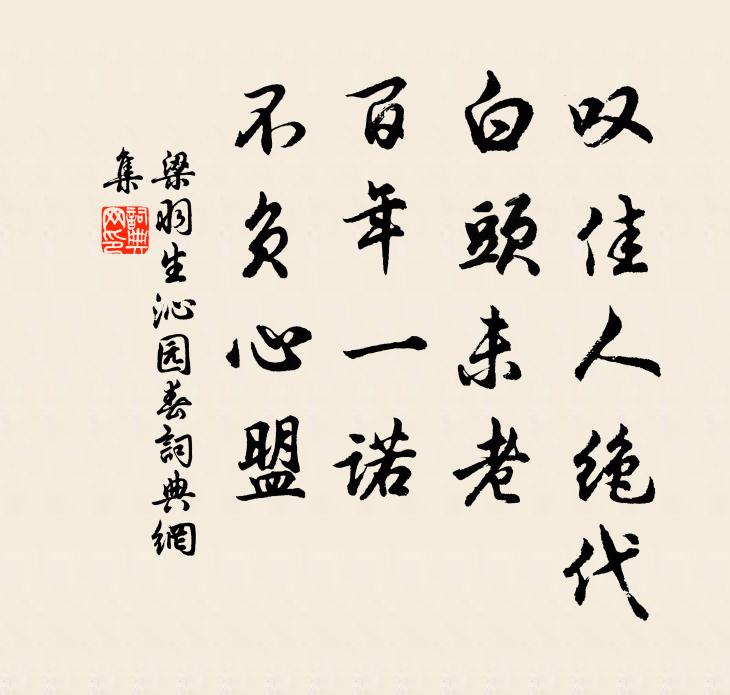 叹佳人绝代
白頭未老
百年一诺
不负心盟
梁羽生沁园春詞典網
集
詞典
网印